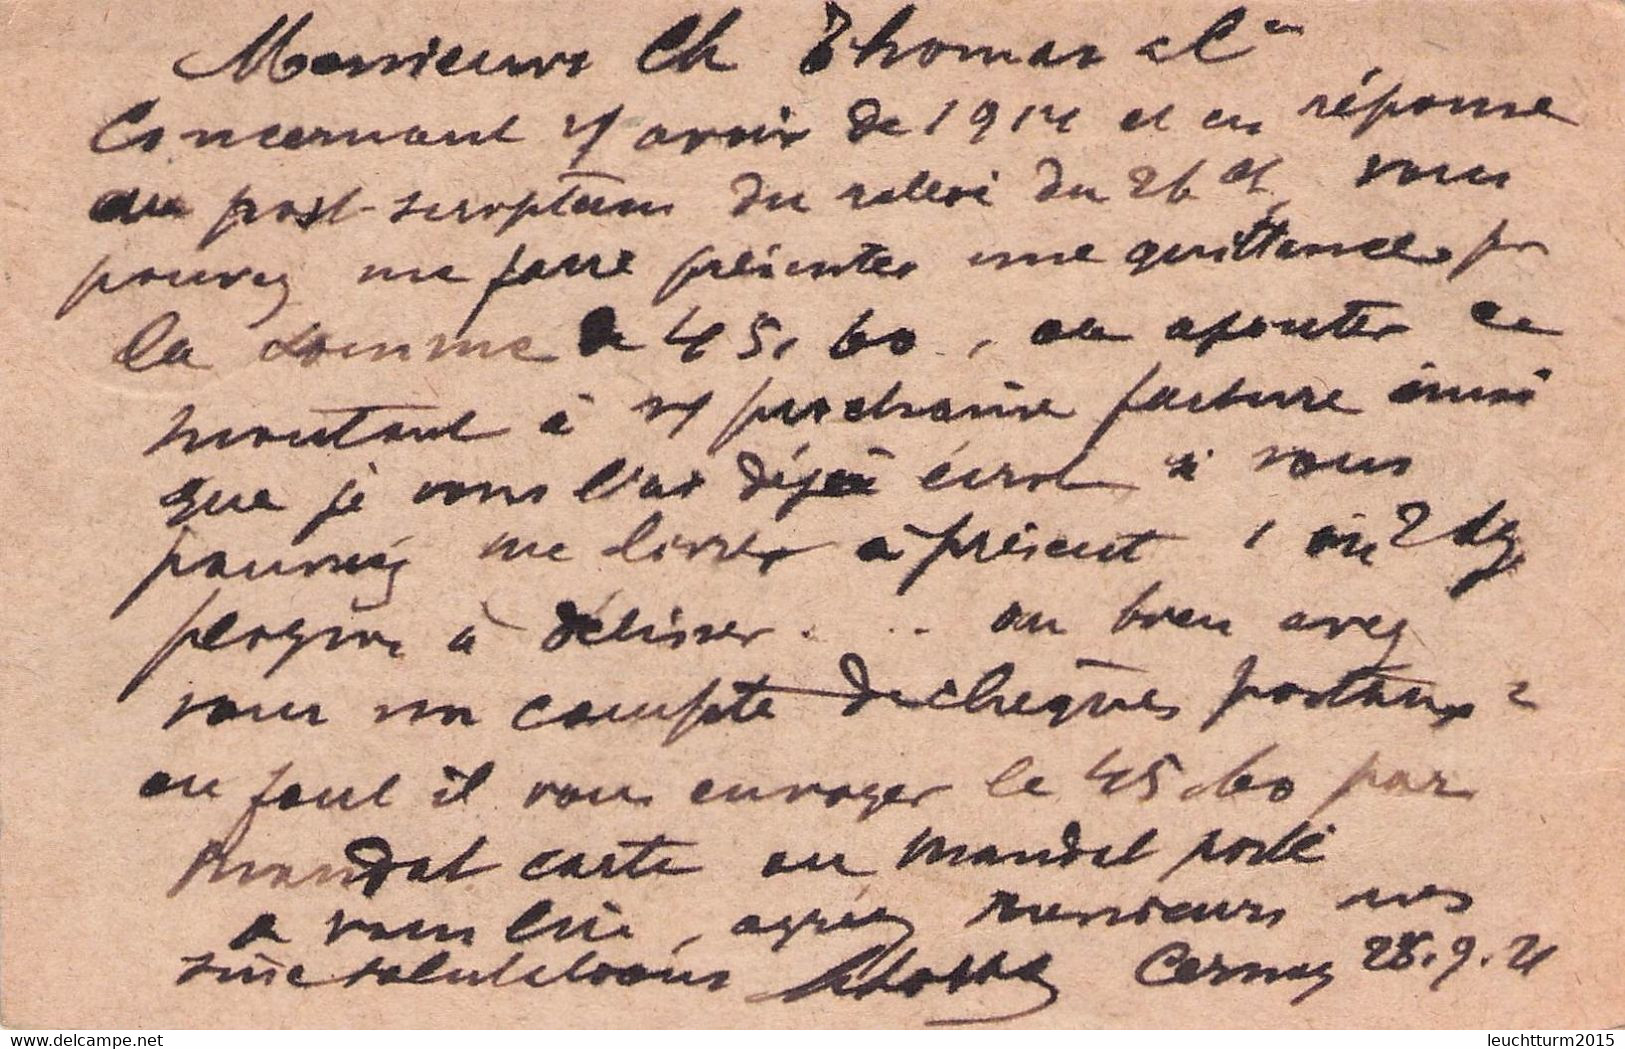 Messieurs Ch Thomas & Cie
Concernant v/ avoir de 1914 et en réponse
au post-scriptum du relevé du 26 ct, vous
pouvez me faire présenter une quittance pr
la somme de 45,60, ou ajouter ce
montant à v/ prochaine facture ainsi
que je vous l'ai déjà écrit si vous
pouviez me livrer à présent 1 ou 2 dz
à délisser . . . ou bien avez
vous un compte de chèques postaux ?
ou faut il vous envoyer le 45.60 par
mandat carte ou mandat poste
a vous lire, agréez messieurs mes
sinc salutations Cernay 28.9.21
delcampe.net
leuchtturm2015